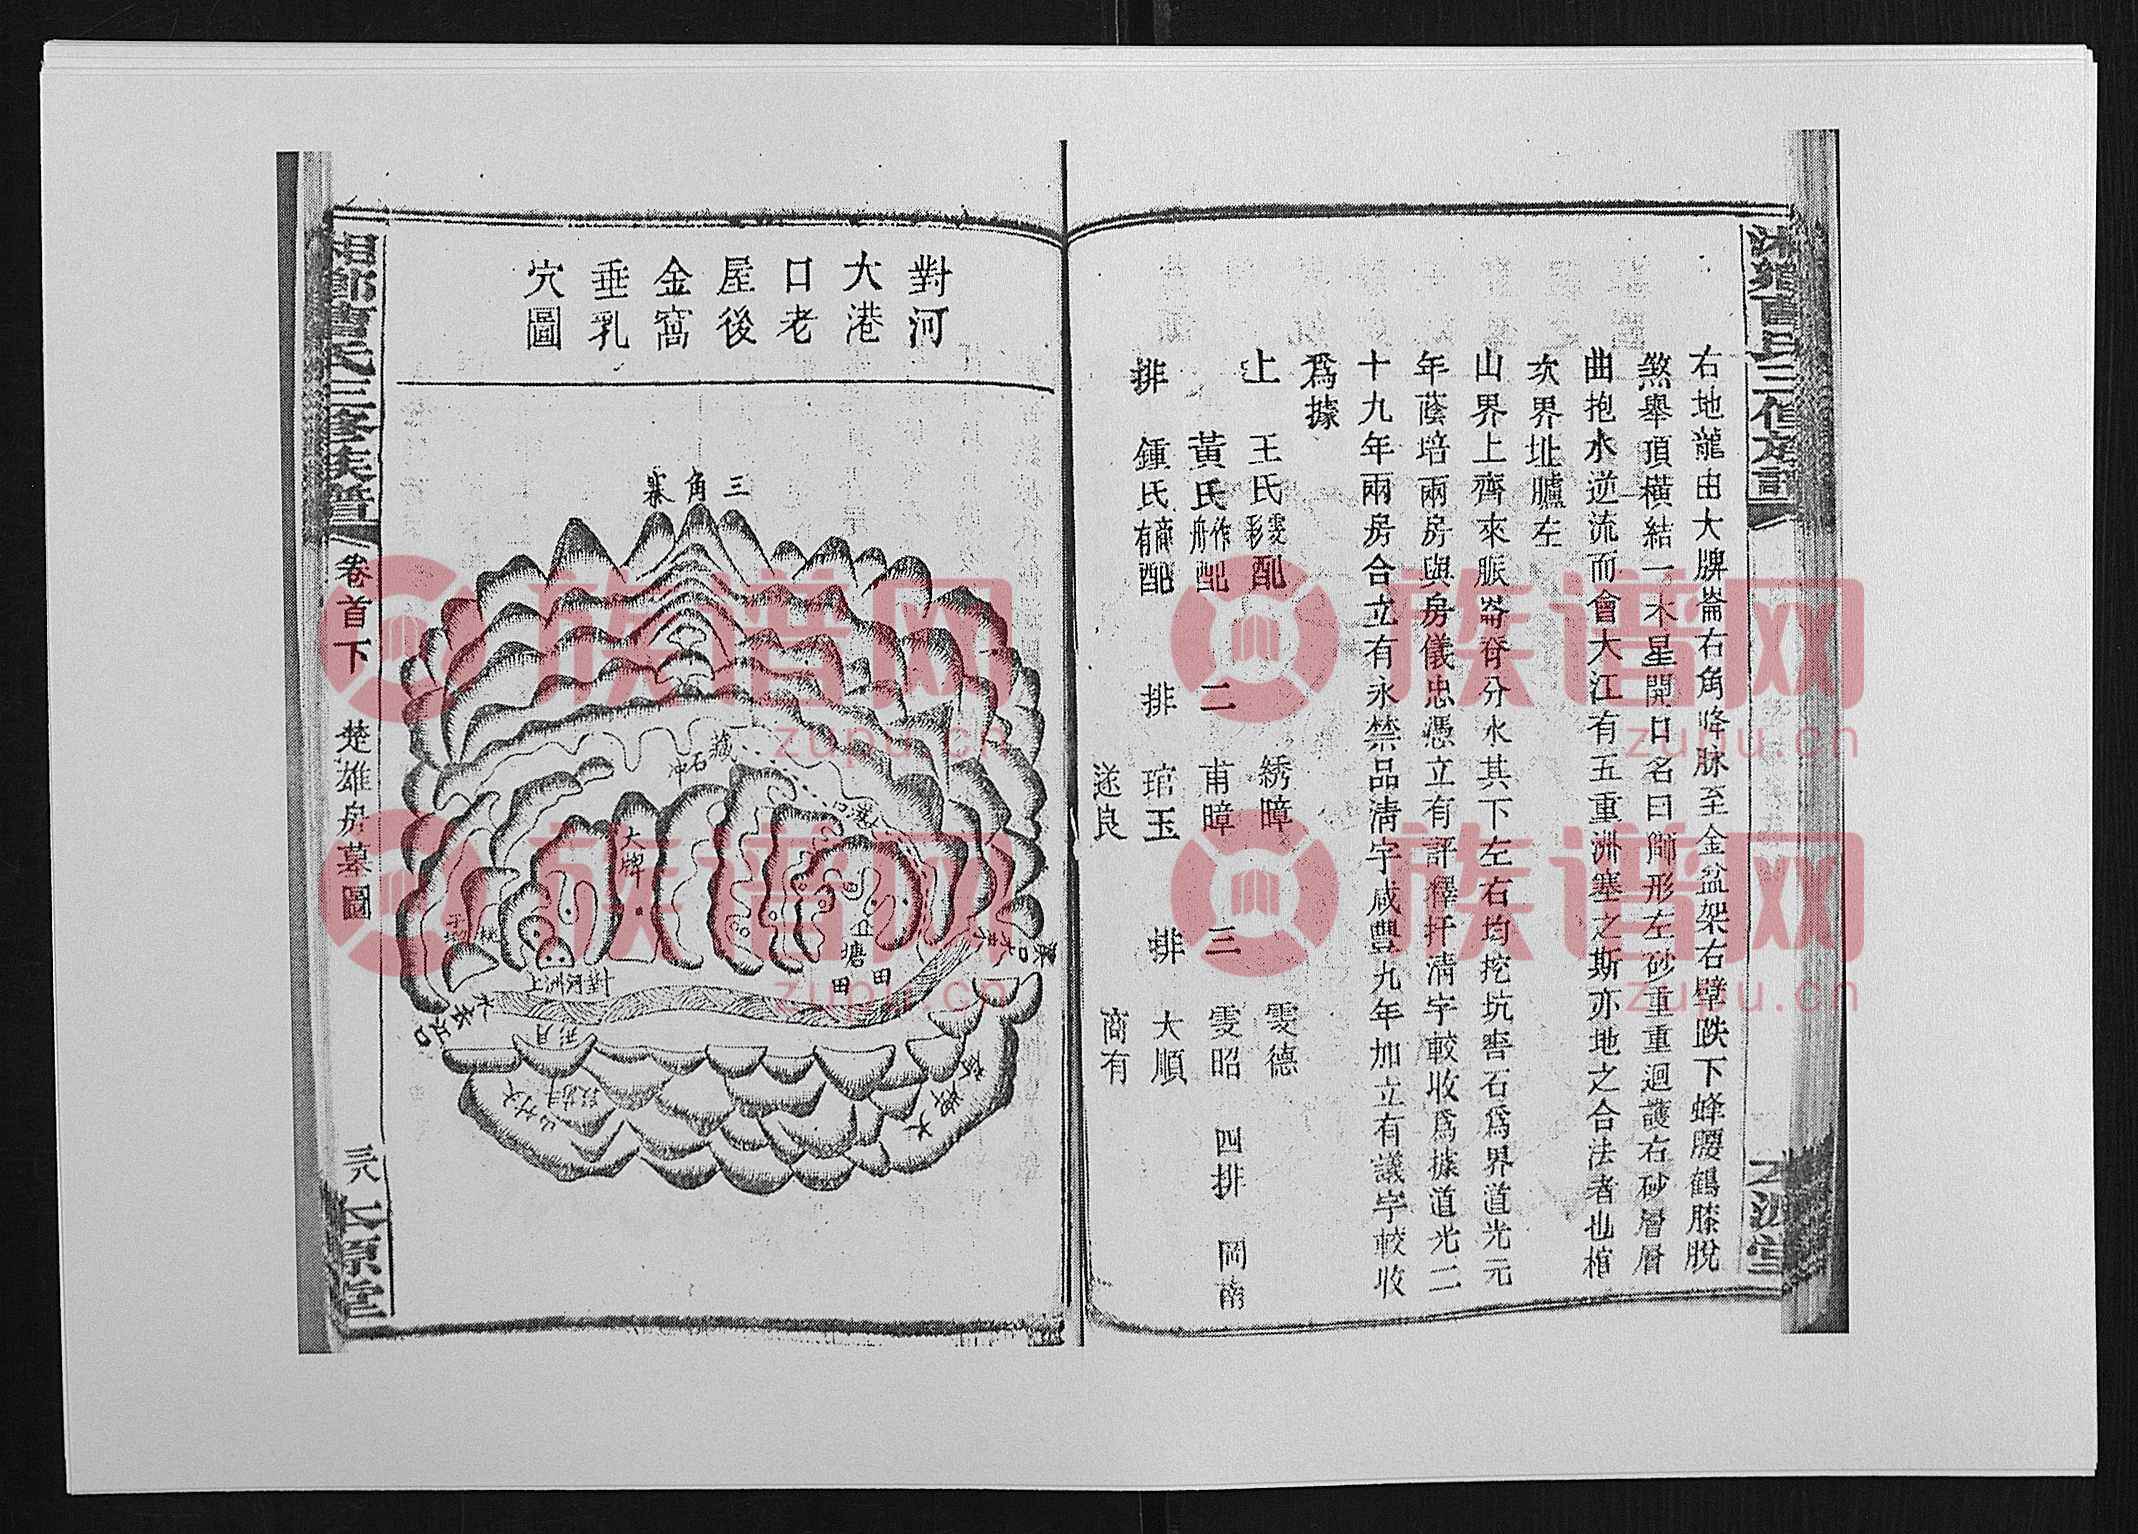 右地龍由大牌崙右角降脉至金盆架右壁跌下蜂腰鶴膝脫
煞舉頂橫結一木星開口名曰獅形左砂重重迴護右砂層層
曲抱水逆流而會大江有五重洲塞之斯亦地之合法者也棺
次界址臚左
山界上齊來脈崙脊分水其下左右均挖坑窖石爲界道光元
年蔭培兩房與房儀忠憑立有評釋扦清字較收爲據道光二
十九年兩房合立有永禁品清字咸豐九年加立有議字較收
爲據
上 王氏雯彩配 二 綉暲 雯德
黃氏作舟配 甫暲 三 雯昭 四排 岡南
排 鍾氏商有配 排 琯玉 排 大順
遂良 商有
對河
大港
口老
屋後
金窩
垂乳
穴圖
三角寨
藏石冲
大牌
企塘
田
田
對河洲上
月形
水去江口
湘鄉曾氏三修族譜
卷首下
楚雄房墓圖
三八
族谱网
zupu.cn
族谱网
zupu.cn
族谱网
zupu.cn
族谱网
zupu.cn